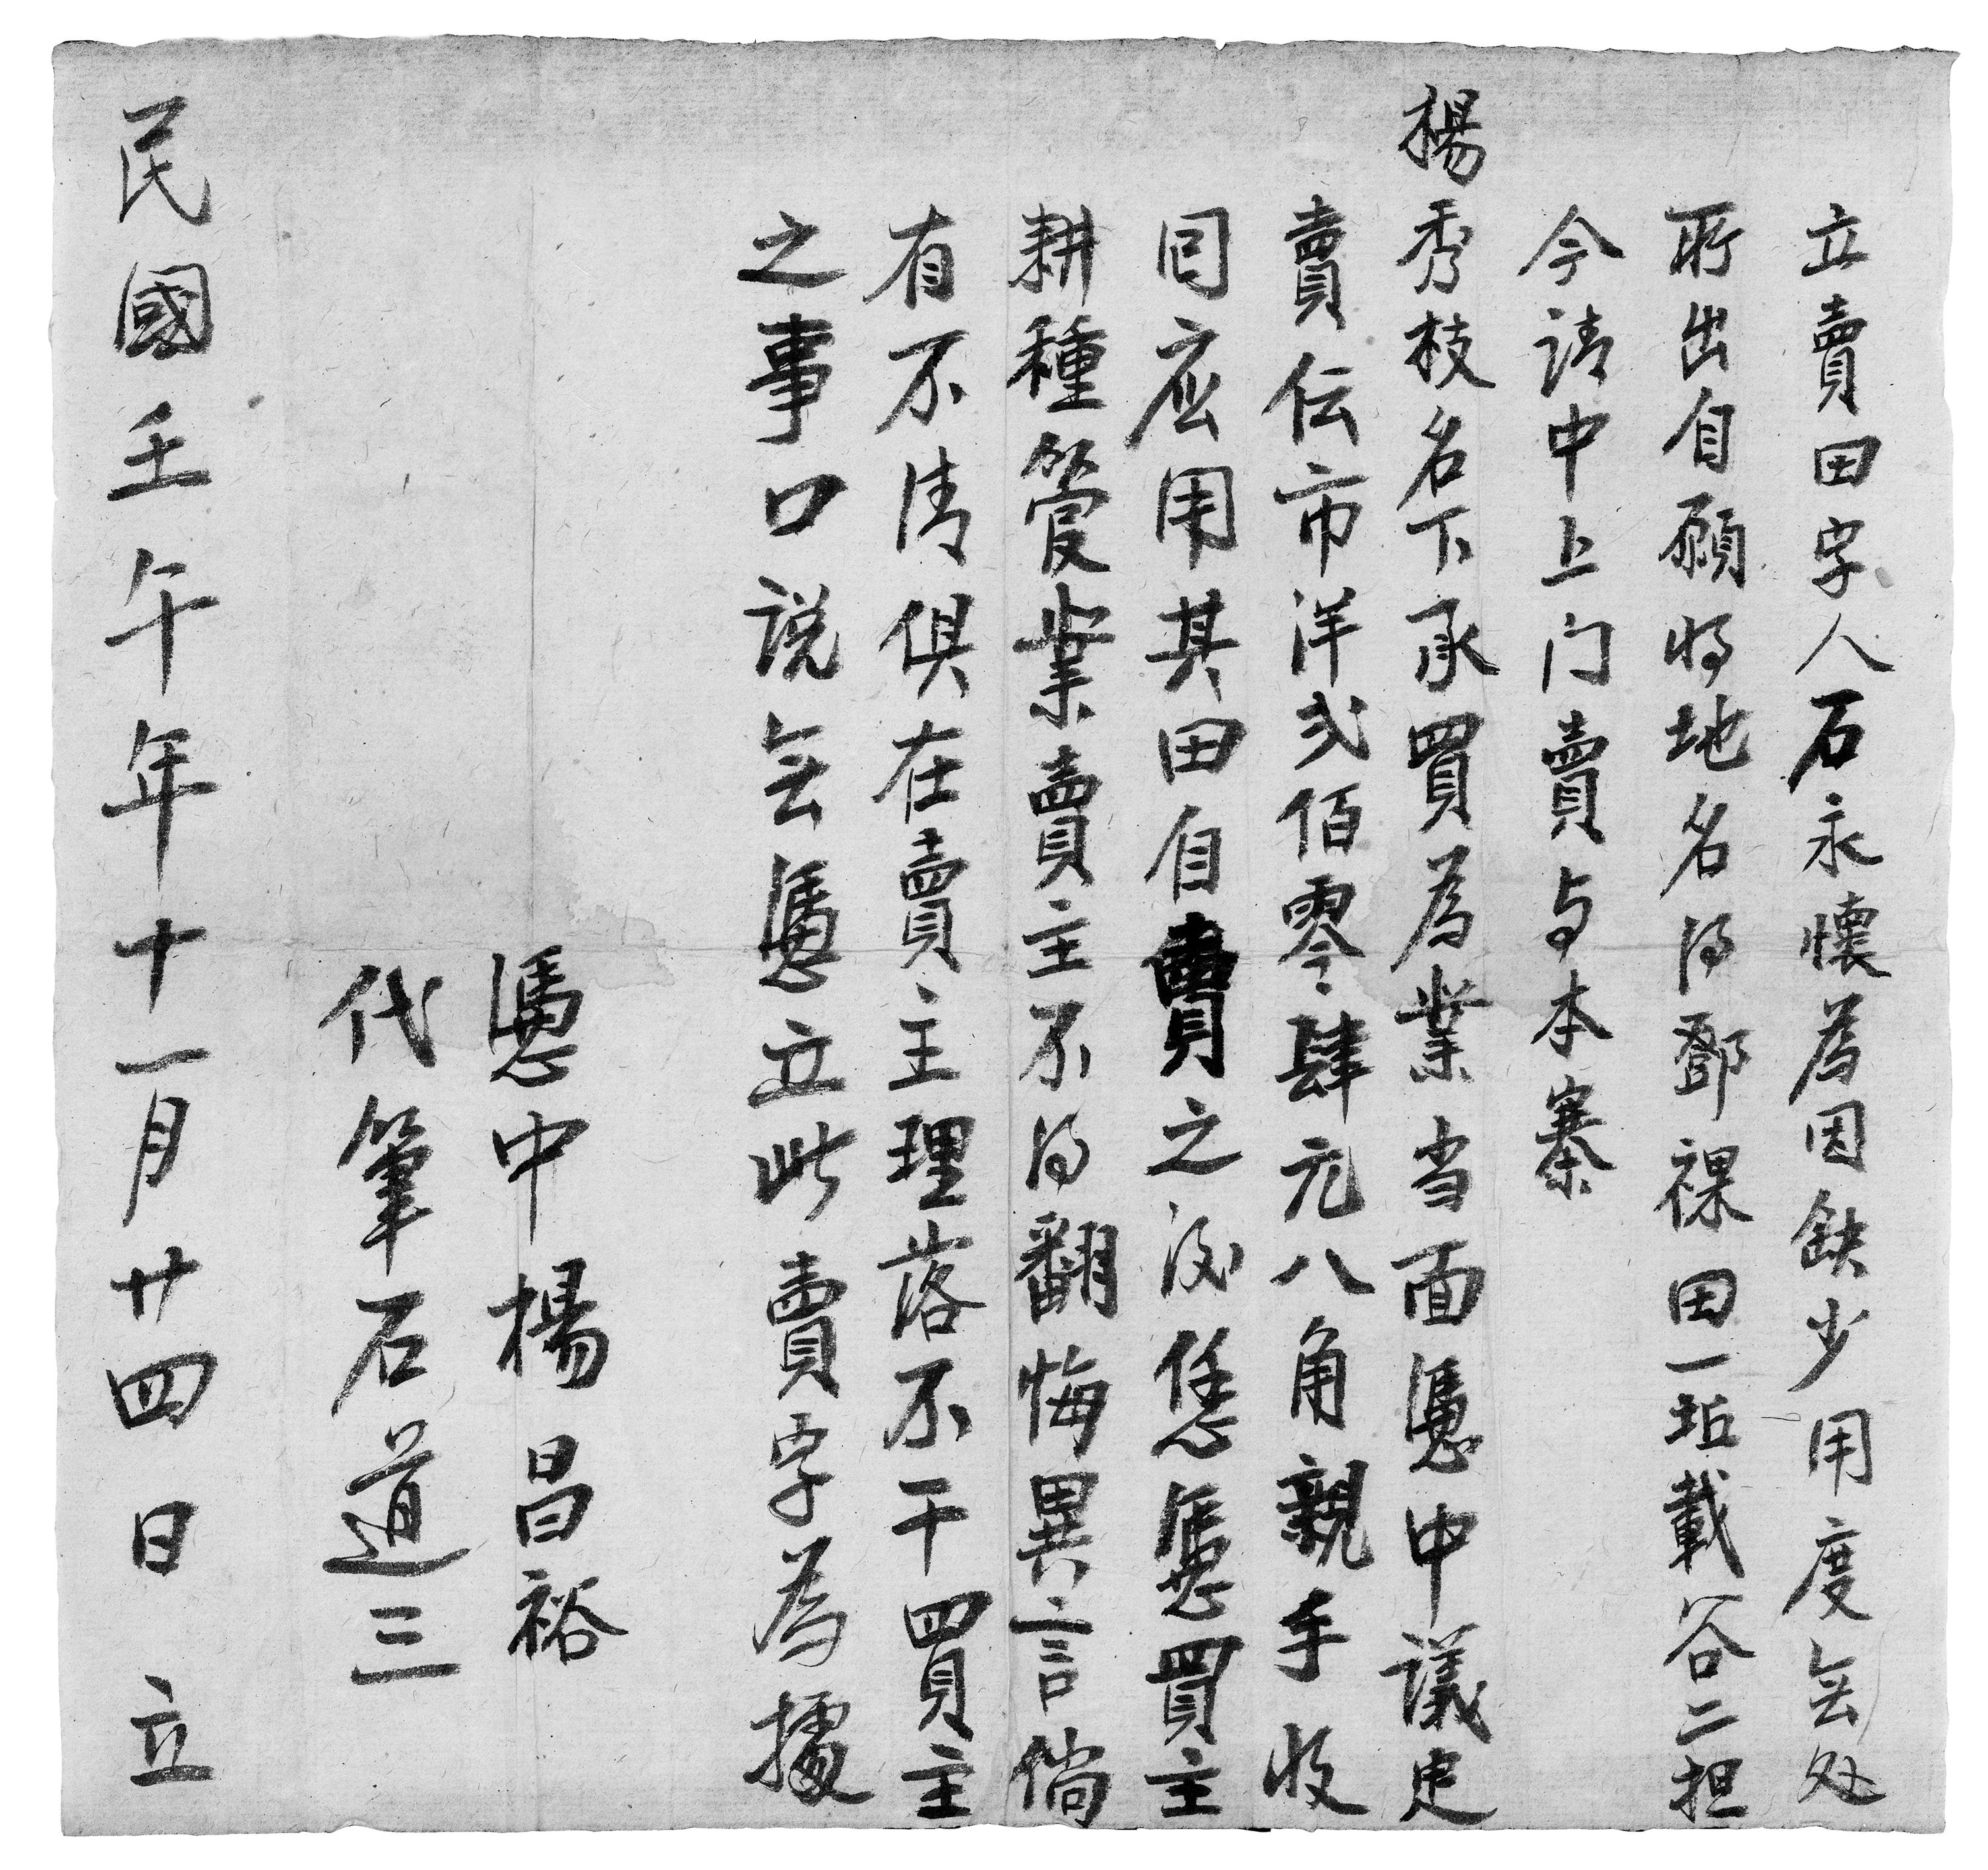 立賣田字人石永懷為因缺少用度无处
所出自願将地名得鄧裸田一坵載谷二担
今请中上门賣与本寨
楊秀枝名下承買為業当面憑中議定
賣伝市洋弍佰零肆元八角親手收
回应用其田自賣之後恁憑買主
耕種管業賣主不得翻悔異言倘
有不清俱在賣主理落不干買主
之事口说无憑立此賣字為據
憑中楊昌裕
代筆石道三
民國壬午年十一月廿四日立